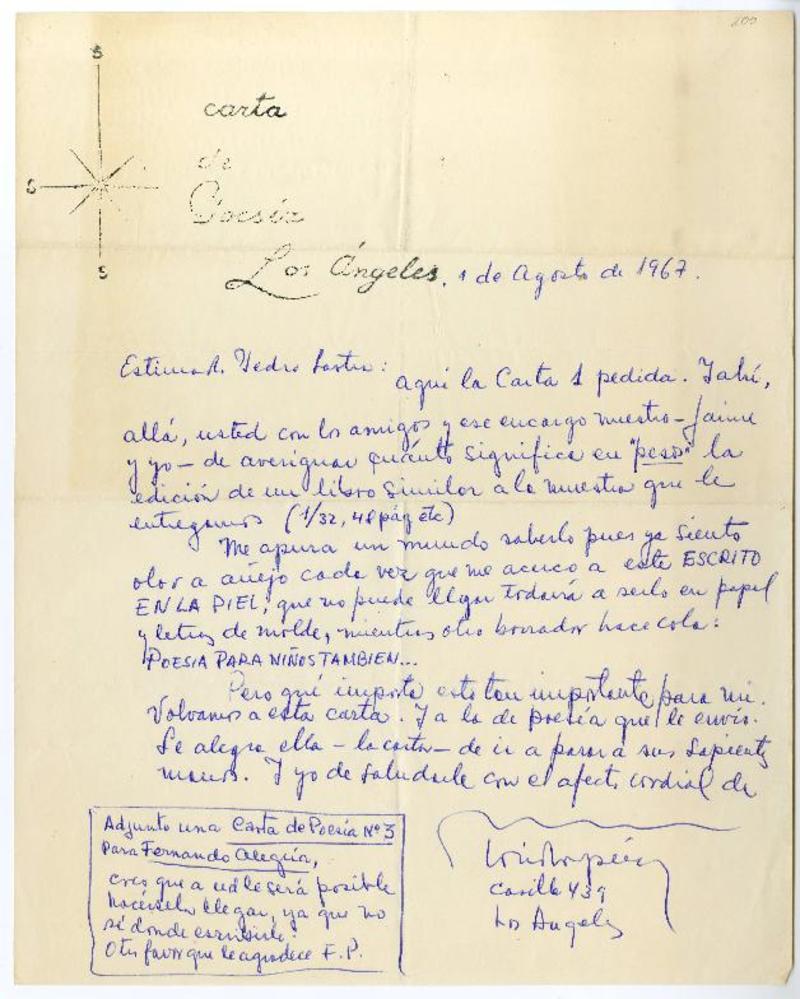 200
S
carta
de
Poesía
S
S
Los Ángeles, 1 de Agosto de 1967.
Estimad. Pedro Lastra:
aquí la Carta 1 pedida. Y ahí,
allá, usted con los amigos y ese encargo nuestro - Jaime
y yo - de averiguar cuánto significa en "pesos" la
edición de un libro similar a la muestra que le
entregamos (1/32, 48 pág etc)
Me apura un mundo saberlo pues ya siento
olor a añejo cada vez que me acerco a este ESCRITO
EN LA PIEL, que no puede llegar todavía a serlo en papel
y letras de molde, mientras otro borrador hace cola:
POESIA PARA NIÑOS TAMBIEN...
Pero qué importa esto tan importante para mi.
Volvamos a esta carta. Y a la de poesía que le envío.
Se alegra ella - la carta - de ir a parar a sus sapientes
manos. Y yo de saludarle con el afecto cordial de
Casilla 439
Los Angeles
Adjunto una Carta de Poesía Nº 3
para Fernando Alegría,
creo que a ud le será posible
hacérsela llegar, ya que no
sé donde escribirle.
Otro favor que le agradece F.P.